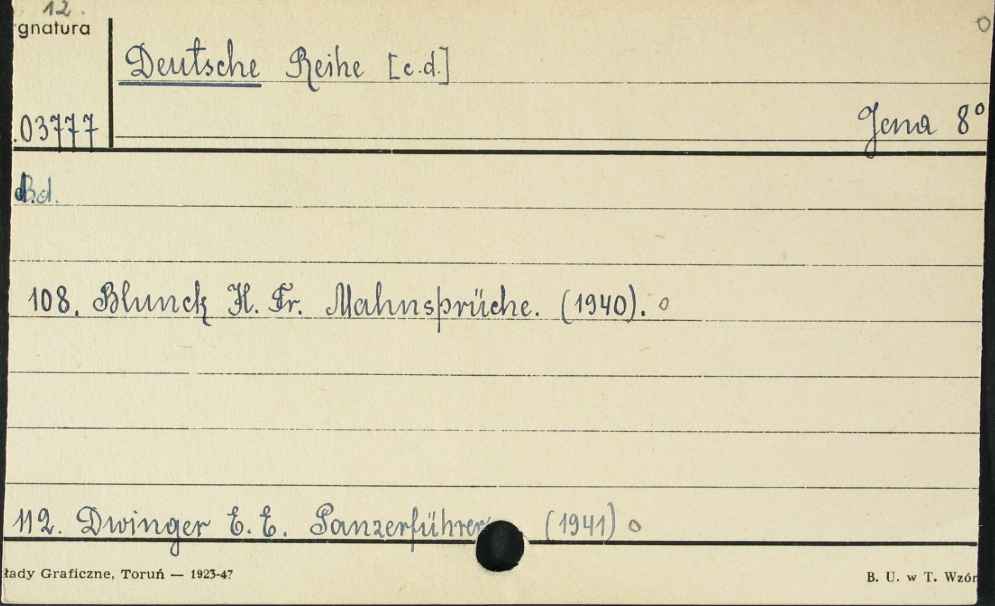 12.
gnatura
Deutsche Reihe [c.d.]
.03777
Jena 8°
Bd.
108. Blunck H. Fr. Mahnsprüche. (1940). o
112. Dwinger E. E. Panzerführer (1941) o
łady Graficzne, Toruń — 1923-47
B. U. w T. Wzór